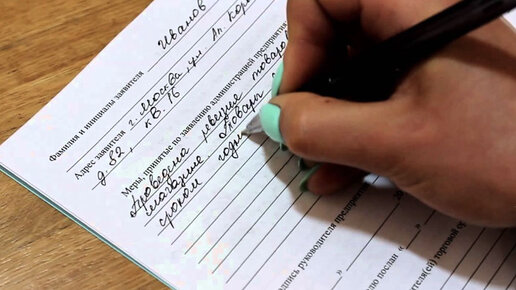 Фамилия и инициалы заявителя Иванов
Адрес заявителя г. Москва, ул. Ак. Коро
д 82, кв 16
Меры, принятые по заявлению администрацией предприятия
Проведена ревизия товаров
магазине. Товары с
сроком годн
дпись руководителя предприятия
20
»
ю послан «
»
ителя(ей) торговой ор